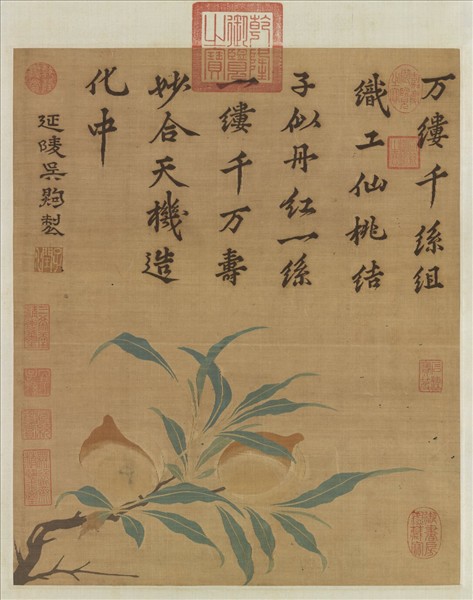 乾隆
御覽
之寶
万缕千絲組
織工仙桃結
子似丹紅一絲
一缕千万壽
妙合天機造
化中
延陵吳煦製